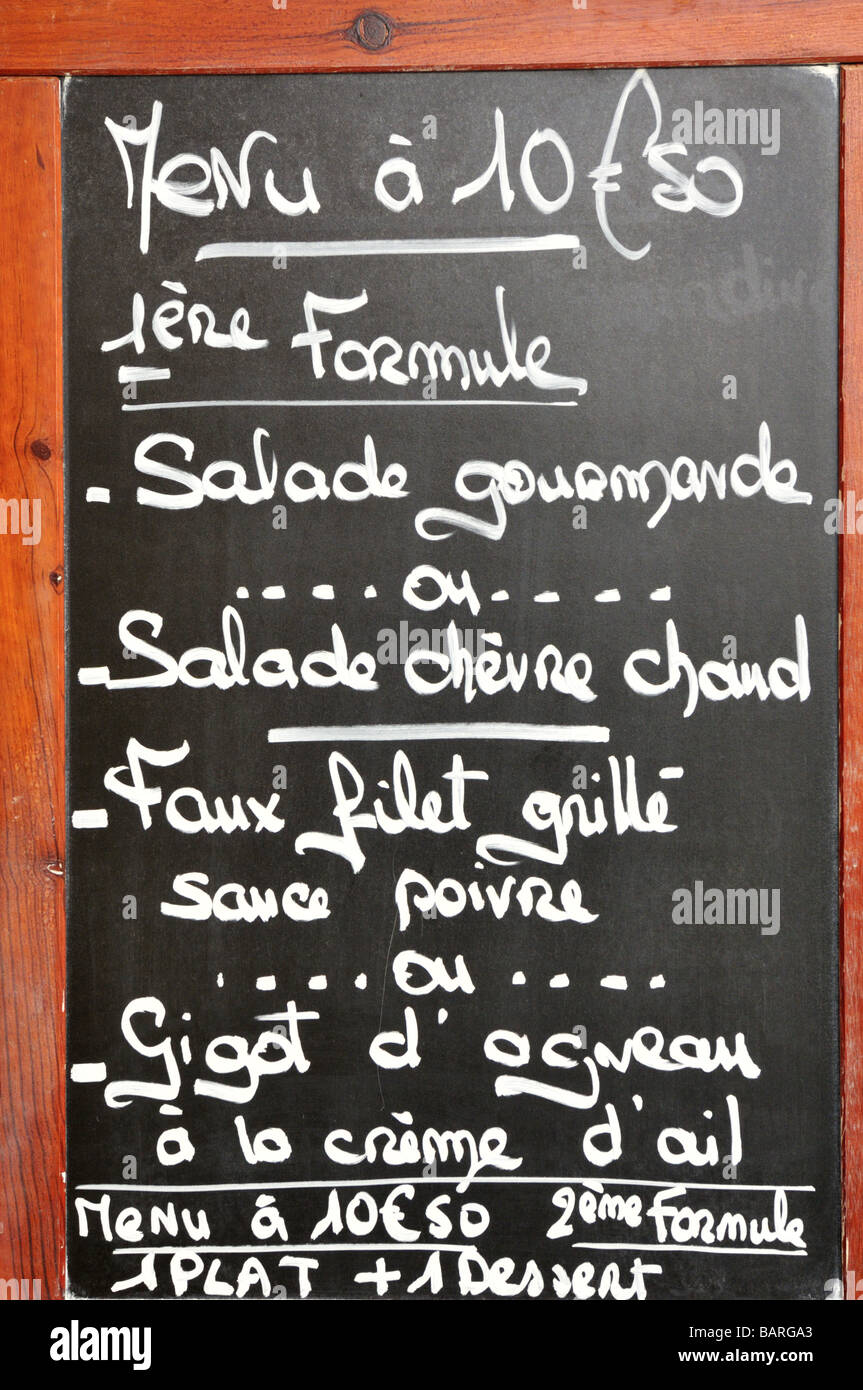 Menu à 10€50
1ère Formule
- Salade gourmande
.... ou .....
- Salade chèvre chaud
- Faux filet grillé
sauce poivre
.... ou ....
- Gigot d'agneau
à la crème d'ail
Menu à 10€50 2ème Formule
1 PLAT + 1 Dessert
alamy
Image ID: BARGA3
www.alamy.com